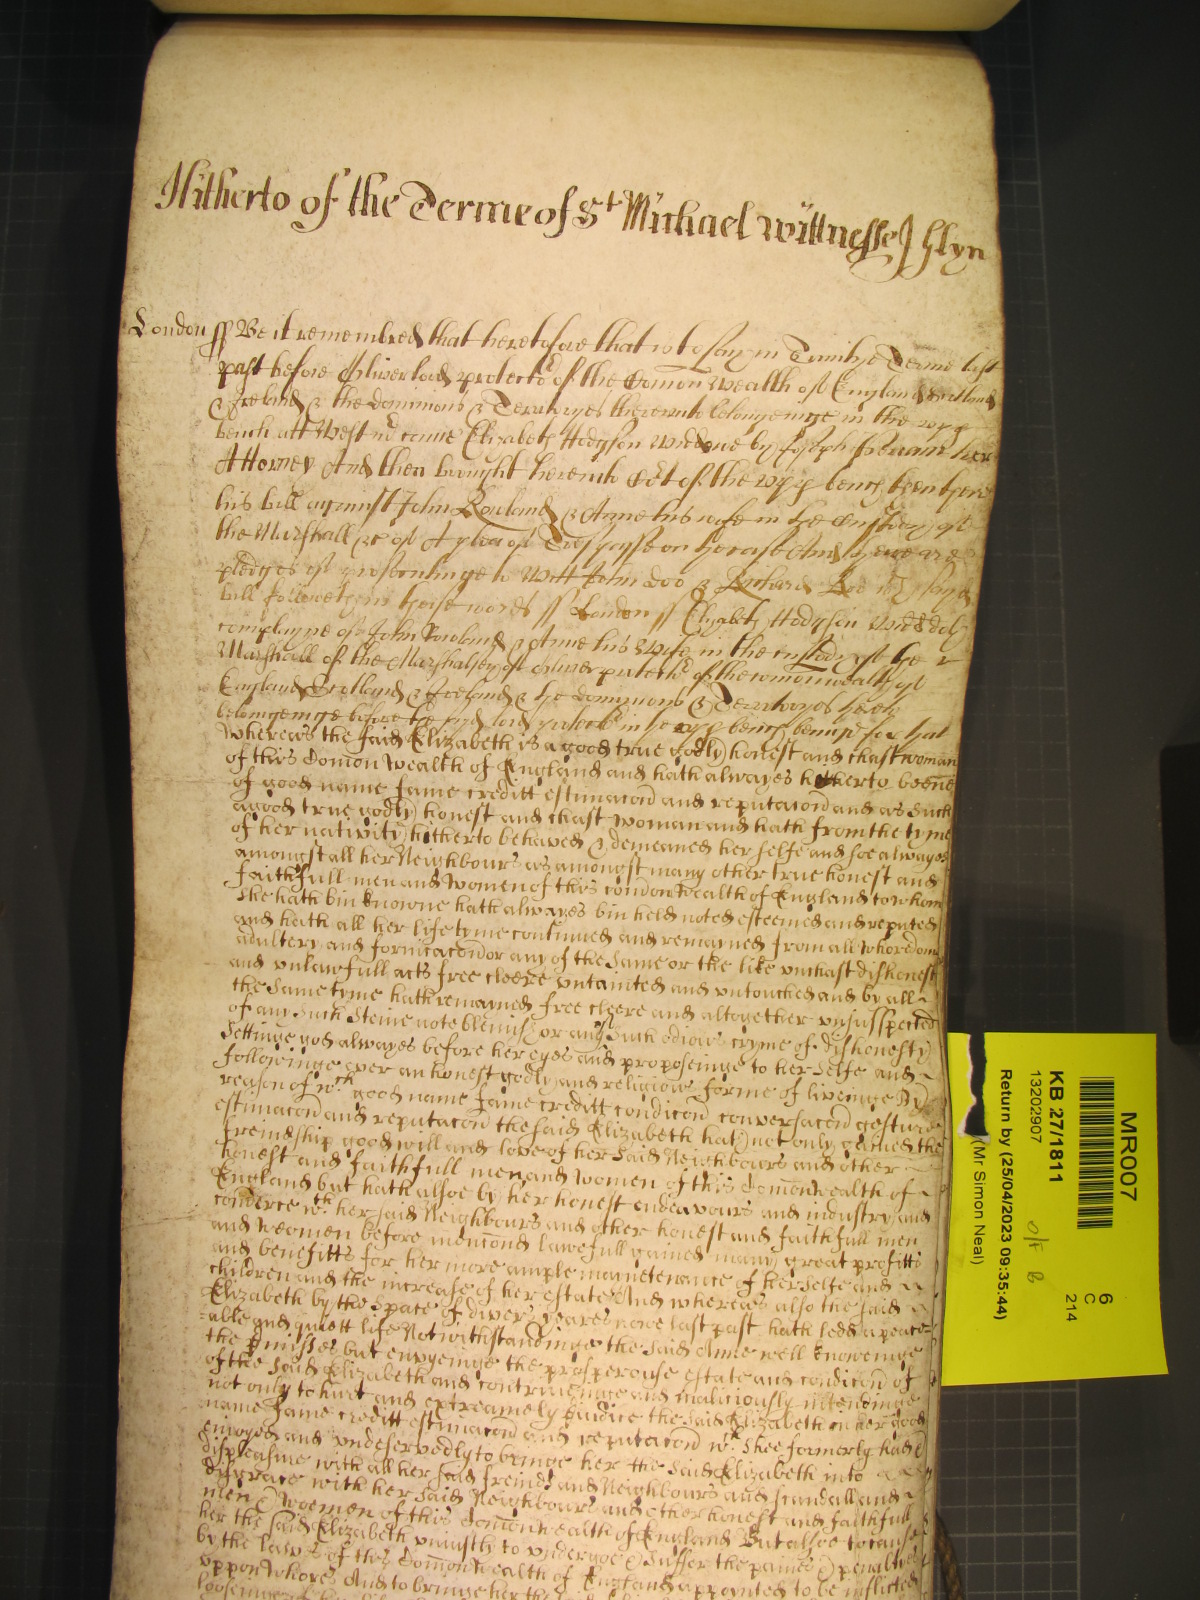 Hitherto of the Terme of St Michael wittnesse J Glyn
London ss Be it remembred that heretofore that is to say in Trinitye Terme last
past before Oliver lord protector of the Comon Wealth of England Scotland
& Ireland & the dominions & Territoryes thereunto belongeinge in the upp
bench att Westmr came Elizabeth Hodgson Widdowe by Joseph her
Attorney And then brought here into Cort of the upp bench then there
his bill against John Rowland & Anne his wife in the Custody of
the Marshall &c of A plea of Trespasse on the case And there are
pledges of prosecutinge to witt John Doo & Richard Roo wch sayd
bill followeth in these words ss London ss Elizabeth Hodgson Widd
complayne of John Rowland & Anne his Wife in the custody of the
Marshall of the Marshalsey of Oliver protector of the comonwealth of
England Scotland & Ireland & the dominions & Territoryes therto
belongeinge before the sayd lord protector in the upp bench beinge for that
whereas the said Elizabeth is a good true godly honest and chast woman
of this Comon Wealth of England and hath alwayes hitherto beene
of good name fame creditt estimacon and reputacon and as such
a good true godly honest and chast woman and hath from the tyme
of her nativity hitherto behaved & demeaned her selfe and soe alwayes
amongst all her Neighbours as amongst many other true honest and
faithfull men and women of this comon Wealth of England to whom
she hath bin knowne hath alwayes bin held noted esteemed and reputed
and hath all her life tyme continued and remained from all whoredom
adultery and fornicacon or any of the same or the like unchast dishonest
and unlawfull acts free cleere untainted and untouched and by all
the same tyme hath remained free cleere and altogether unsusspected
of any such steine note blemish or any such odious cryme of dishonesty
settinge god alwayes before her eyes and proposeinge to her selfe and
followeinge ever an honest godly and religious forme of liveinge By
reason of wch good name fame creditt condicon conversacon gesture
estimacon and reputacon the said Elizabeth hath not only gained the
freindship good will and love of her said Neighbours and other
honest and faithfull men and women of this Comonwealth of
England but hath allsoe by her honest endeavours and industry and
comerce wth her said Neighbours and other honest and faithfull men
and weomen before menconed lawefull gained many great profitts
and benefitts for her more ample maintenance of her selfe and
children and the increase of her estate And whereas also the said
Elizabeth by the space of divers yeares nowe last past hath ledd a peace=
=able and quiett life Notwithstandinge the said Anne well knoweinge
the pmisses but envyeinge the prosperouse estate and condicon of
of the said Elizabeth and contriveinge and maliciously intendinge
not only to hurt and extreamely piudice the said Elizabeth in her good
name fame creditt estimacon and reputacon wch shee formerly had
enioyed and undeservedly to bringe her the said Elizabeth into
displeasure with all her said freinds and Neighbours and scandall and
disgrace with her said Neighbours and other honest and faithfull
men & woemen of this Comonwealth of England But allsoe to cause
her the said Elizabeth uniustly to undergoe & suffer the paines & penaltyes
by the lawes of this Comonwealth of England appoynted to be inflicted
uppon whores And to bringe her the
MR007
6
C
214
KB 27/1811
13202907
Return by (25/04/2023 09:35:44)
(Mr Simon Neal)